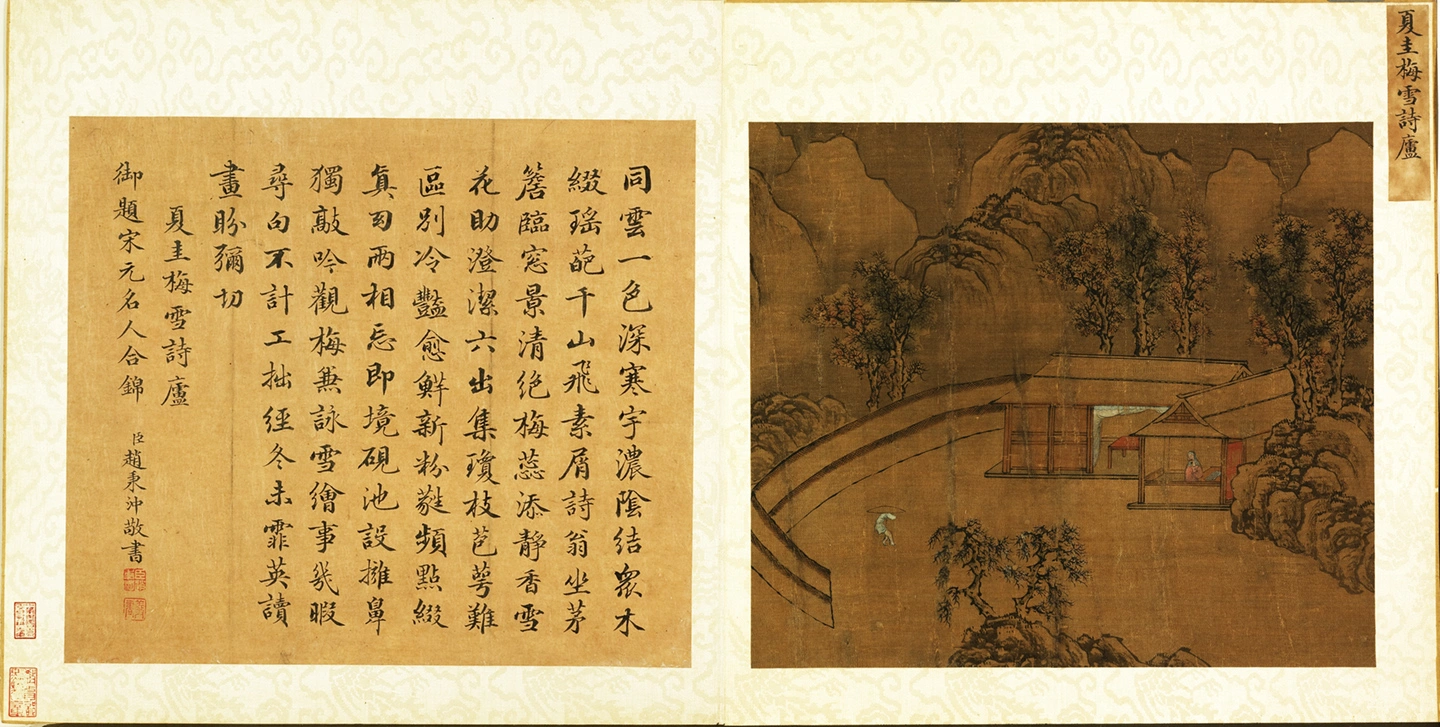 夏圭梅雪詩廬
同雲一色深寒宇濃陰結眾木
綴瑤葩千山飛素屑詩翁坐茅
簷臨窓景清絕梅蕊添靜香雪
花助澄潔六出集瓊枝苞萼難
區別冷豔愈鮮新粉蕤頻點綴
兩相忘即境硯池設擁鼻
獨敲吟觀梅兼詠雪繪事幾暇
尋句不計工拙經冬未霏英讀
畫盼彌切
夏圭梅雪詩廬
御題宋元名人合錦 臣趙秉沖敬書